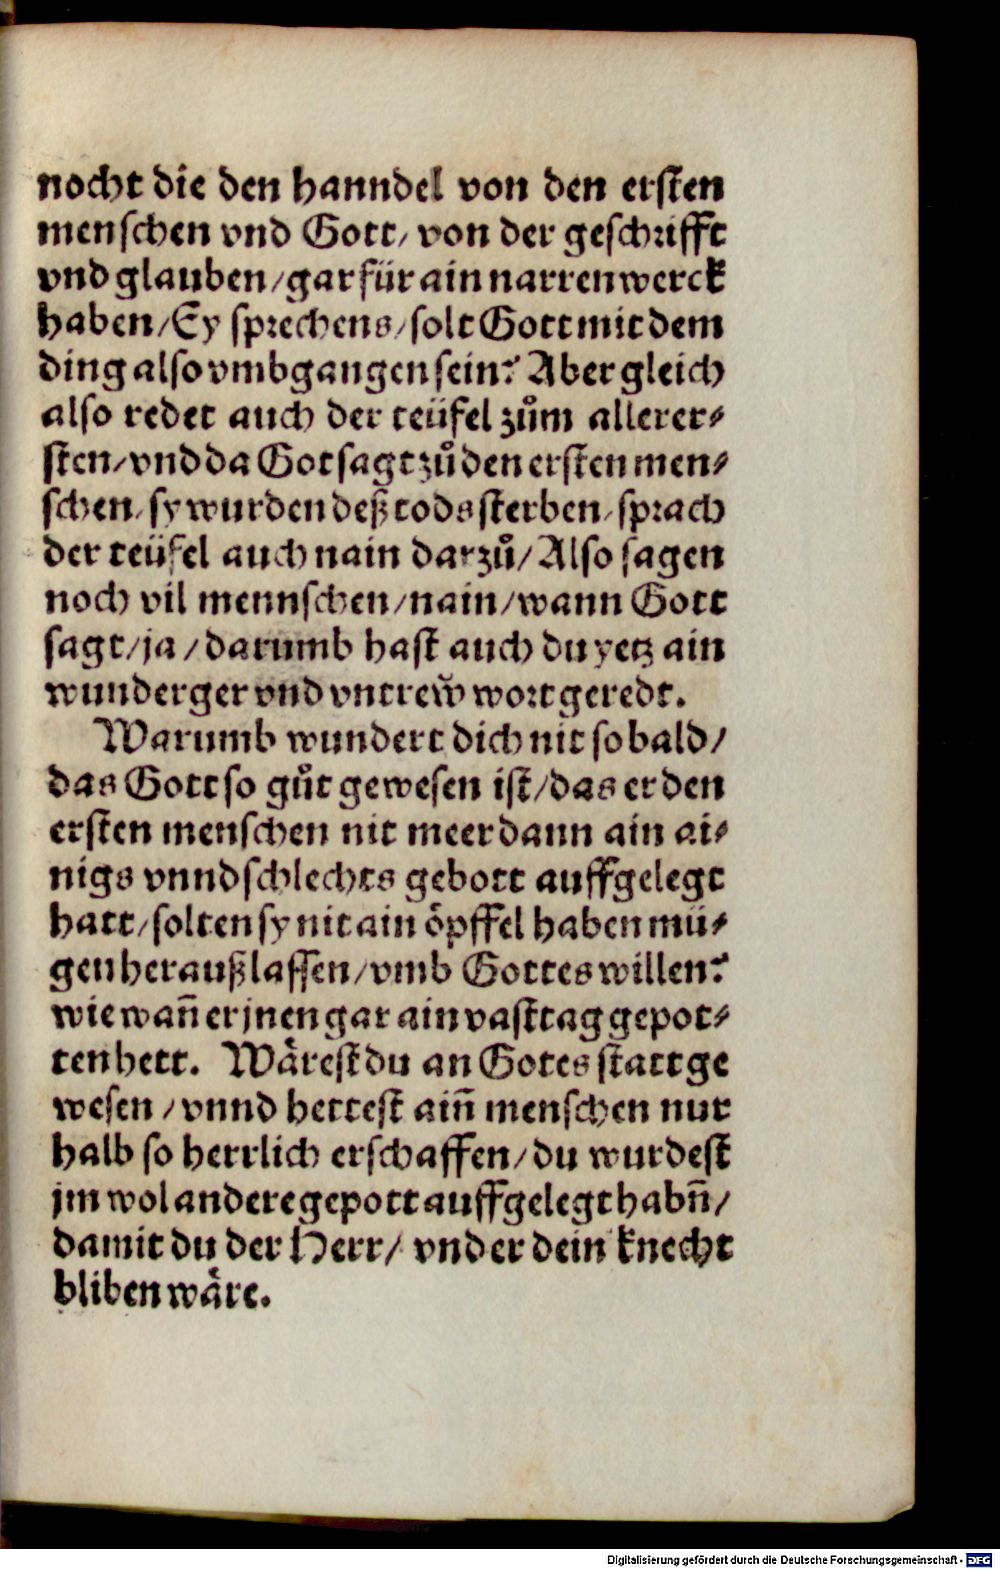 nocht die den hanndel von den ersten
menschen vnd Gott/ von der geschrifft
vnd glauben/gar für ain narren werck
haben/Ey sprechens/solt Gott mit dem
ding also vmbgangen sein? Aber gleich
also redet auch der teüfel zům allerer⸗
sten/vnd da Got sagt zů den ersten men⸗
schen/sy wurden deß tods sterben/sprach
der teüfel auch nain darzů/Also sagen
noch vil mennschen/nain/wann Gott
sagt/ja/darumb hast auch du yetz ain
wunderger vnd vntrew̃ wort geredt.
Warumb wundert dich nit so bald/
das Gott so gůt gewesen ist/das er den
ersten menschen nit meer dann ain ai⸗
nigs vnnd schlechts gebott auffgelegt
hatt/solten sy nit ain öpffel haben mü⸗
gen heraußlassen/vmb Gottes willen?
wie wañ er jnen gar ain vasttag gepot⸗
ten hett. Wärest du an Gotes statt ge
wesen/vnnd hettest aiñ menschen nur
halb so herrlich erschaffen/du wurdest
jm wol andere gepott auffgelegt habñ/
damit du der Herr/ vnd er dein knecht
bliben wäre.
Digitalisierung gefördert durch die Deutsche Forschungsgemeinschaft - DFG